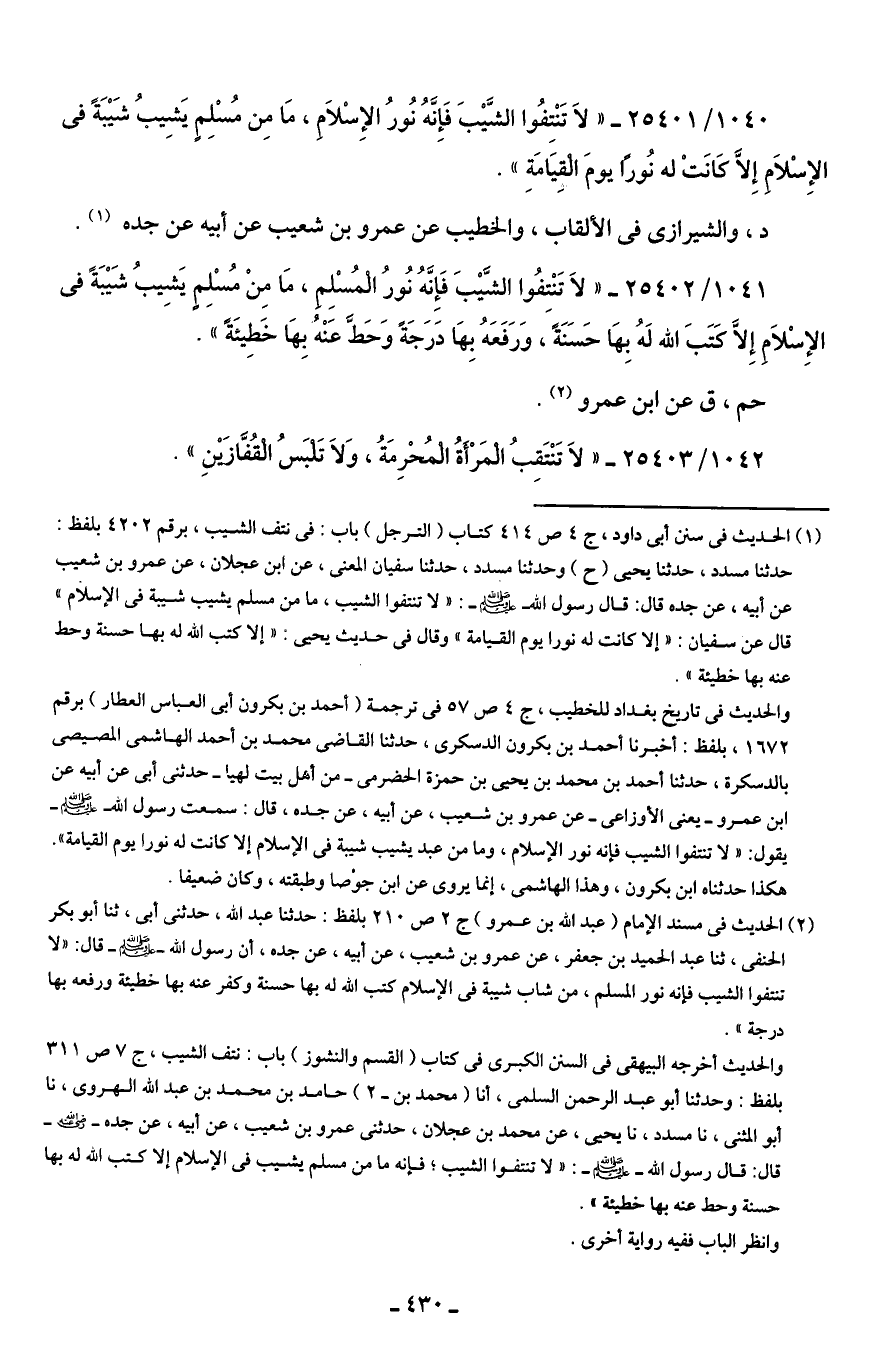 ١٠٤٠/ ٢٥٤٠١ ـ « لاَ تَنْتِفُوا الشَّيْبَ فَإِنَّهُ نُورُ الإِسْلاَمِ ، مَا مِن مُسْلِمٍ يَشيبُ شَيْبَةً فى
الإِسْلاَمِ إِلاَّ كَانَتْ له نُورًا يومَ الْقِيَامَةِ » .
د ، والشيرازى فى الألقاب ، والخطيب عن عمرو بن شعيب عن أبيه عن جده (١) .
١٠٤١/ ٢٥٤٠٢ ـ « لاَ تَنْتِفُوا الشَّيْبَ فَإِنَّهُ نُورُ الْمُسْلِمِ ، مَا مِنْ مُسْلِمٍ يَشِيبُ شَيْبَةً فى
الإِسْلاَمِ إِلاَّ كَتَبَ الله لَهُ بِهَا حَسَنَةً ، وَرَفَعَهُ بِهَا دَرَجَةً وَحَطَّ عَنْهُ بِهَا خَطِيئَةً » .
حم ، ق عن ابن عمرو (٢) .
١٠٤٢/ ٢٥٤٠٣ ـ « لاَ تَنْتَقِبُ الْمَرْأَةُ الْمُحْرِمَةُ ، وَلاَ تَلْبَسُ الْقُفَّازَيْنِ » .
(١) الحديث فى سنن أبى داود ، ج ٤ ص ٤١٤ كتاب ( الترجل ) باب : فى نتف الشيب ، برقم ٤٢٠٢ بلفظ :
حدثنا مسدد ، حدثنا يحيى ( ح ) وحدثنا مسدد ، حدثنا سفيان المعنى ، عن ابن عجلان ، عن عمرو بن شعيب
عن أبيه ، عن جده قال: قال رسول الله ـ ﷺ ـ : « لا تنتفوا الشيب ، ما من مسلم يشيب شيبة فى الإسلام »
قال عن سفيان : « إلا كانت له نورا يوم القيامة » وقال فى حديث يحيى : « إلا كتب الله له بها حسنة وحط
عنه بها خطيئة » .
والحديث فى تاريخ بغداد للخطيب ، ج ٤ ص ٥٧ فى ترجمة ( أحمد بن بكرون أبى العباس العطار ) برقم
١٦٧٢ ، بلفظ : أخبرنا أحمد بن بكرون الدسكرى ، حدثنا القاضى محمد بن أحمد الهاشمى المصيصى
بالدسكرة ، حدثنا أحمد بن محمد بن يحيى بن حمزة الحضرمى ـ من أهل بيت لهيا ـ حدثنى أبى عن أبيه عن
ابن عمرو ـ يعنى الأوزاعى ـ عن عمرو بن شعيب ، عن أبيه ، عن جده ، قال : سمعت رسول الله ـ ﷺ ـ
يقول: « لا تنتفوا الشيب فإنه نور الإسلام ، وما من عبد يشيب شيبة فى الإسلام إلا كانت له نورا يوم القيامة».
هكذا حدثناه ابن بكرون ، وهذا الهاشمى ، إنما يروى عن ابن جوْصا وطبقته ، وكان ضعيفا .
(٢) الحديث فى مسند الإمام ( عبد الله بن عمرو ) ج ٢ ص ٢١٠ بلفظ : حدثنا عبد الله ، حدثنى أبى ، ثنا أبو بكر
الحنفى ، ثنا عبد الحميد بن جعفر ، عن عمرو بن شعيب ، عن أبيه ، عن جده ، أن رسول الله ـ ﷺ ـ قال: «لا
تنتفوا الشيب فإنه نور المسلم ، من شاب شيبة فى الإسلام كتب الله له بها حسنة وكفر عنه بها خطيئة ورفعه بها
درجة » .
والحديث أخرجه البيهقى فى السنن الكبرى فى كتاب ( القسم والنشوز ) باب : نتف الشيب ، ج ٧ ص ٣١١
بلفظ : وحدثنا أبو عبد الرحمن السلمى ، أنا ( محمد بن ـ ٢ ) حامد بن محمد بن عبد الله الهروى ، نا
أبو المثنى ، نا مسدد ، نا يحيى ، عن محمد بن عجلان ، حدثنى عمرو بن شعيب ، عن أبيه ، عن جده ـ رضي الله عنه ـ
قال: قال رسول الله ـ ﷺ ـ : « لا تنتفوا الشيب ؛ فإنه ما من مسلم يشيب فى الإسلام إلا كتب الله له بها
حسنة وحط عنه بها خطيئة » .
وانظر الباب ففيه رواية أخرى .
ـ ٤٣٠ ـ